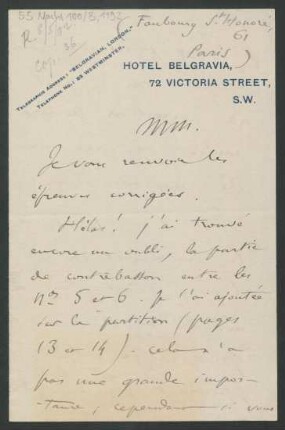 Faubourg St Honoré,
61
Paris)
TELEGRAPHIC ADDRESS: "BELGRAVIAN, LONDON."
TELEPHONE No.: 89 WESTMINSTER.
HOTEL BELGRAVIA,
72 VICTORIA STREET,
S.W.
MM.
Je vous renvoie les
épreuves corrigées.
Hélas! j'ai trouvé
encore un oubli, la partie
de contrebasson entre les
Nos 5 et 6. Je l'ai ajoutée
sur la partition (pages
13 et 14). cela n'a
pas une grande impor-
tance, cependant si vous